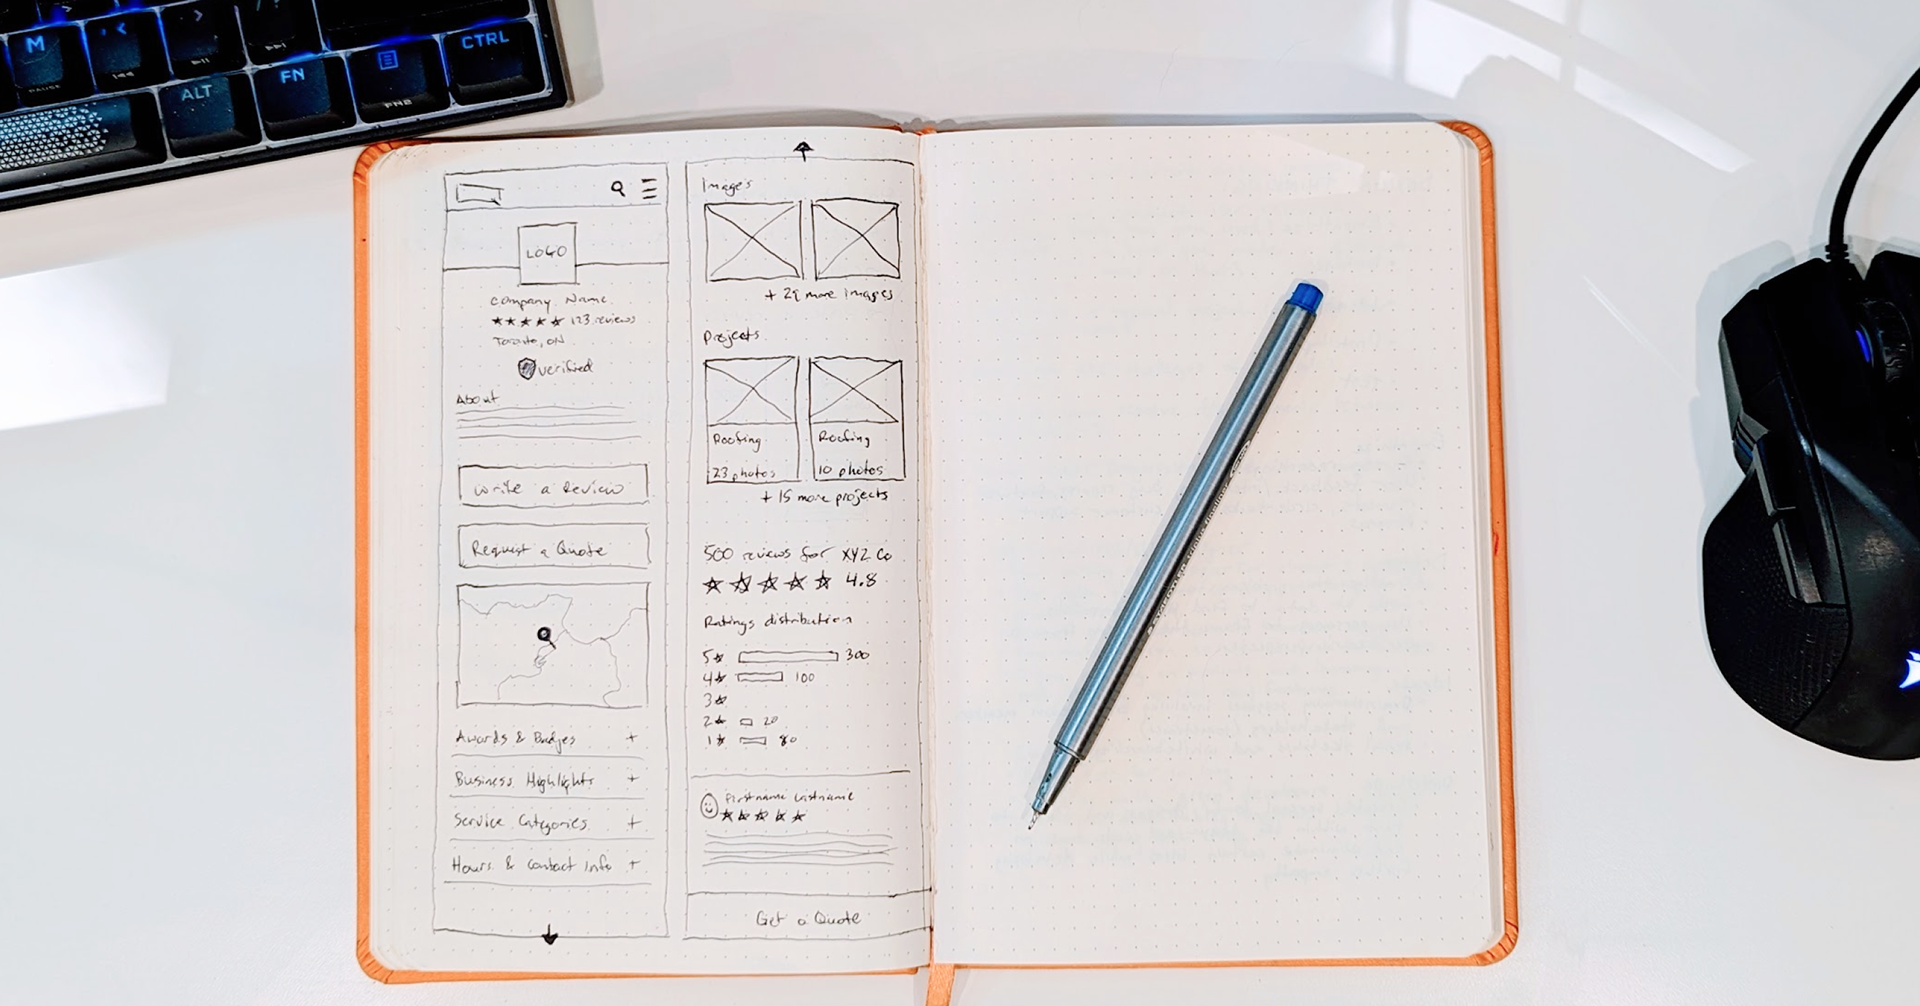 M
PAUSE
ALT
FN
FN2
CTRL
LOGO
Company Name
★★★★★ 123 reviews
Toronto, ON
verified
About
Write a Review
Request a Quote
Awards & Badges +
Business Highlights +
Service Categories +
Hours & Contact Info +
Images
more images
Projects
Roofing
23 photos
Roofing
10 photos
+ 15 more projects
500 reviews for XYZ Co
★★★★★ 4.8
Ratings distribution
5★ 300
4★ 100
3★
2★ 20
1★ 80
Firstname Lastname
★★★★★
Get a Quote